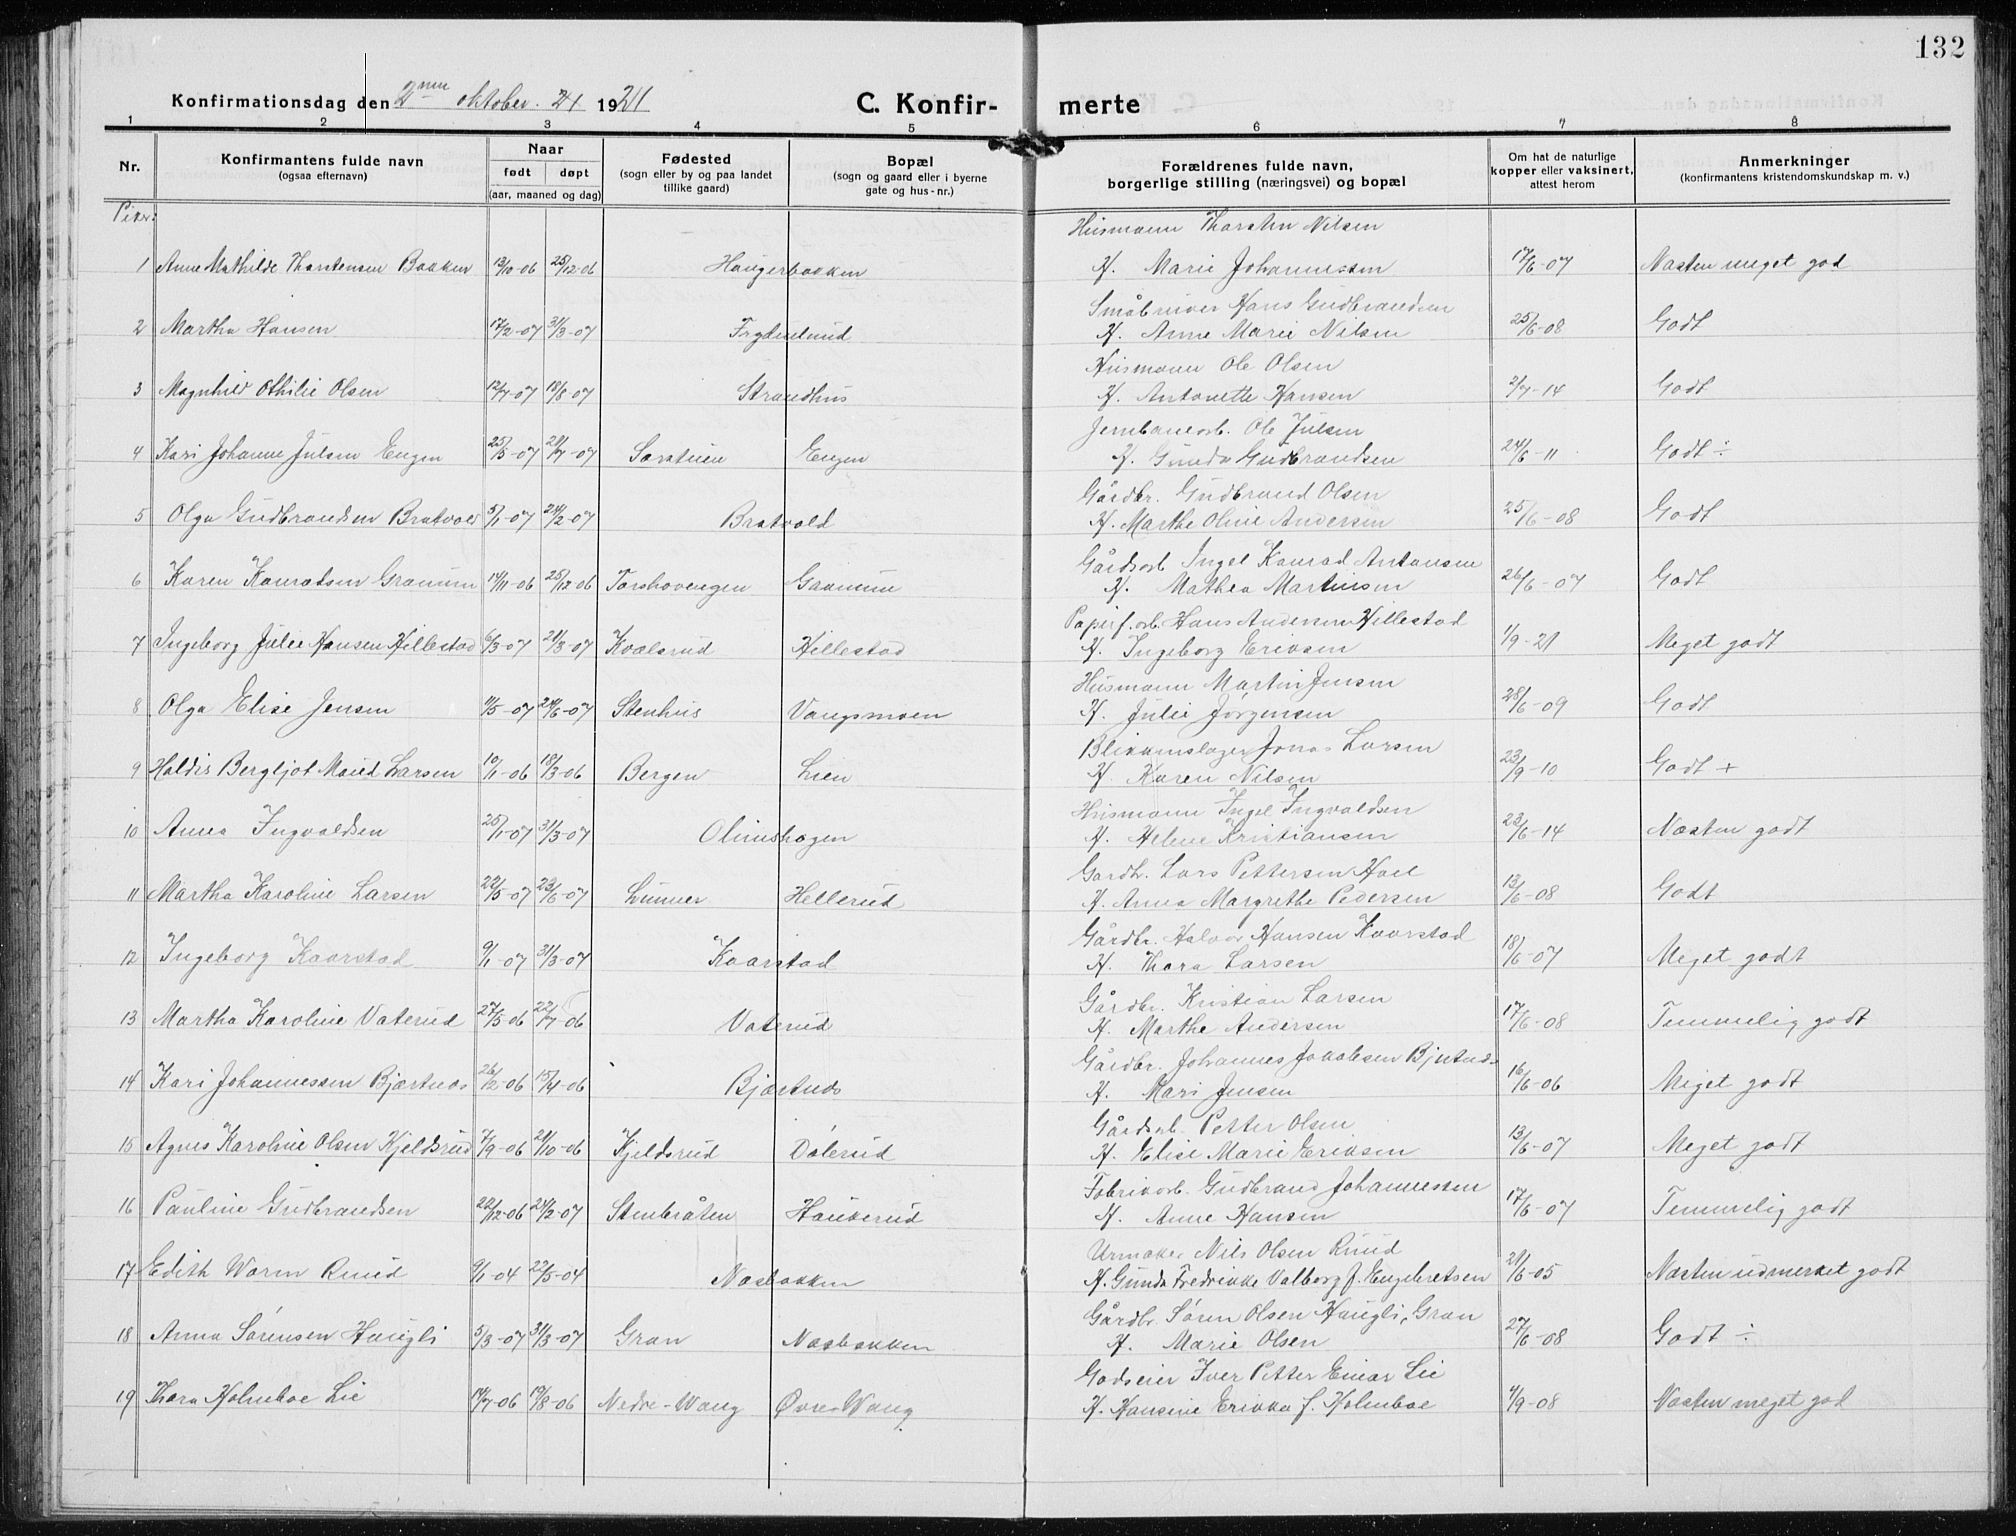 132
Konfirmationsdag den 2nen oktober. 21 1921
C. Konfir- merte
1 2 3 4 5 6 7 8
Nr. Konfirmantens fulde navn (ogsaa efternavn) Naar født døpt (aar, maaned og dag) Fødested (sogn eller by og paa landet tillike gaard) Bopæl (sogn og gaard eller i byerne gate og hus-nr.) Forældrenes fulde navn, borgerlige stilling (næringsvei) og bopæl Om hat de naturlige kopper eller vaksinert, attest herom Anmerkninger (konfirmantens kristendomskundskap m. v.)
Piker:
Husmann Thorsten Nilsen
1 Anne Mathilde Thorstensen Bakken 13/10-06 25/12-06 Haugerbakken H. Marie Johannessen 17/6-07 Næsten meget god
Småbruker Hans Gudbrandsen
2 Martha Hansen 17/2-07 31/3-07 Frydenlund H. Anne Marie Nilsen 25/6-08 Godt
Husmann Ole Olsen
3 Magnhild Othilie Olsen 12/7-07 18/8-07 Strandhus H. Antonette Hansen 2/7-14 Godt
Jernbanearb. Ole Julsen
4 Kari Johanne Julsen Engen 25/5-07 21/7-07 Engen H. Gunda Gudbrandsen 24/6-11 Godt ÷
Gårdbr. Gudbrand Olsen
5 Olga Gudbrandsen Bratvold 5/1-07 24/2-07 Bratvold H. Marthe Oline Andersen 25/6-08 Godt
Gårdsarb Ingel Konrad Antonsen
6 Karen Konradsen Granum 14/11-06 25/12-06 Torshovengen Gaanum H. Mathea Martinsen 26/6-07 Godt
Papirf.arb. Hans Andersen Hillestad
7 Ingeborg Julie Hansen Hillestad 6/3-07 21/3-07 Kvalsrud Hillestad H. Ingeborg Eriksen 1/9-21 Meget godt
Husmann Martin Jensen
8 Olga Elise Jensen 11/5-07 24/6-07 Stenhus Vangsmoen H. Julie Jørgensen 28/6-09 Godt
Blikkenslager Jonas Larsen
9 Haldis Bergljot Maud Larsen 10/1-06 18/3-06 Bergen Lien H. Karen Nilsen 23/9-10 Godt +
Husmann Ingel Ingvaldsen
10 Anna Ingvaldsen 25/1-07 31/3-07 Olimshagen H. Helene Kristiansen 23/6-14 Næsten godt
Gardbr. Lars Pettersen Hoel
11 Martha Karoline Larsen 22/5-07 23/6-07 Lunner Hellerud H. Anna Margrethe Pedersen 13/6-08 Godt
Gårdbr. Halvor Hansen Kaarstad
12 Ingeborg Kaarstad 9/1-07 31/3-07 Kaarstad H. Thora Larsen 18/6-07 Meget godt
Gårdbr. Kristian Larsen
13 Martha Karoline Vaterud 27/5-06 22/7-06 Vaterud H. Marthe Andersen 17/6-08 Temmelig godt
Gårdbr. Johannes Jakobsen Bjertnæs
14 Kari Johannessen Bjærtnæs 26/2-06 15/4-06 Bjærtnæs H. Mari Jensen 16/6-06 Meget godt
Gårdsarb. Petter Olsen
15 Agnes Karoline Olsen Kjeldsrud 7/9-06 21/10-06 Kjeldsrud Dølerud H. Elise Marie Eriksen 13/6-07 Meget godt
Fabrikarb. Gudbrand Johannessen
16 Pauline Gudbrandsen 22/12-06 24/2-07 Stenbråten Haukerud H. Anne Hansen 17/6-07 Temmelig godt
Urmaker Nils Olsen Ruud
17 Edith Worm Ruud 9/1-04 22/5-04 Næsbakken H. Gunda Fredrikke Valborg f. Engebretsen 21/6-05 Næsten udmerket godt
Gårdbr. Søren Olsen Haugli, Gran
18 Anna Sørensen Haugli 5/3-07 31/3-07 Gran Næsbakken H. Marie Olsen 27/6-08 Godt ÷
Godseier Iver Petter Einar Lie
19 Thora Holmboe Lie 14/7-06 19/8-06 Nedre-Wang Øvre-Wang H. Hansine Erikka f. Holmboe 4/9-08 Næsten meget god